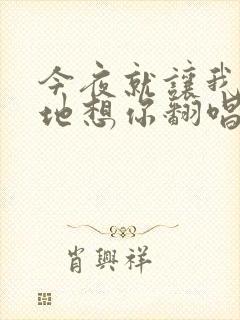 今夜就讓我
地想你翻唱
肖興祥